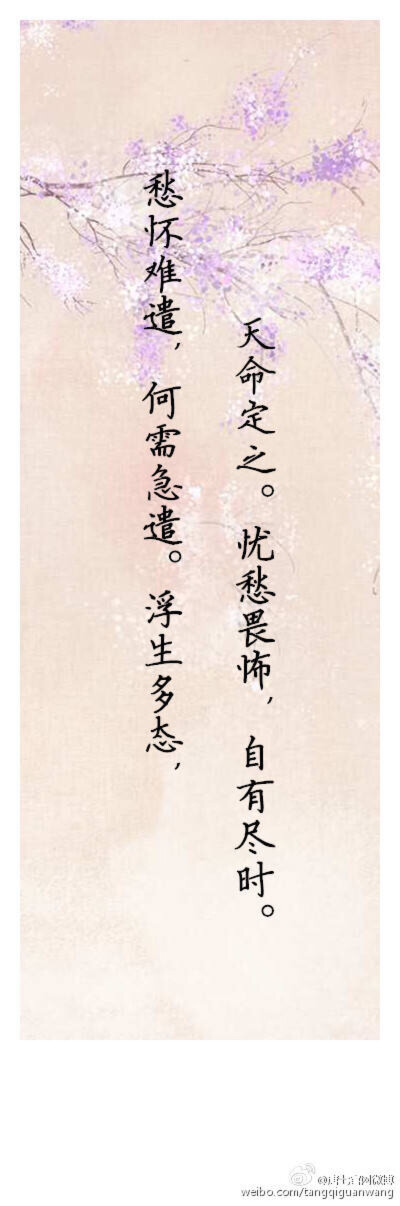 愁怀难遣，何需急遣。浮生多态，
天命定之。忧愁畏怖，自有尽时。
weibo.com/tangqiguanwang